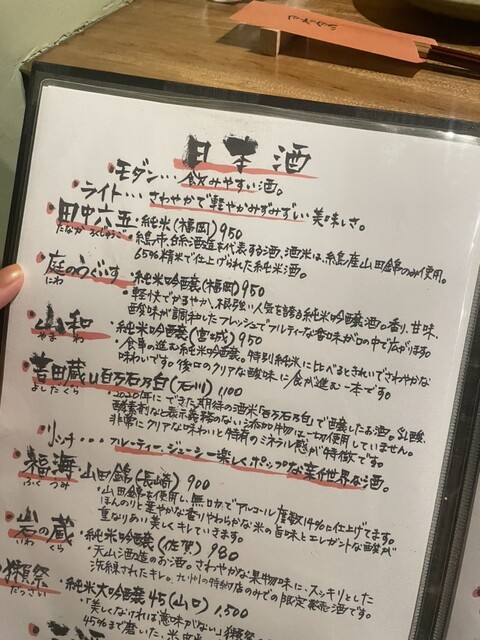 日本酒
モダン…飲みやすい酒。
ライト…さわやかで軽やかみずみずしい美味しさ。
田中六五・純米(福岡)950
たなか ろくじゅうご
・糸島市、白糸酒造を代表する酒。酒米は、糸島産山田錦のみ使用。
65%精米で仕上げられた純米酒。
庭のうぐいす・純米吟醸(福岡)950
にわ
・軽快でかろやか、根強い人気を誇る純米吟醸酒。香り、甘味、
酸味が調和したフレッシュでフルーティーな香味が口の中で広がります。
山和・純米吟醸(宮城)950
やまわ
・食事の進む純米吟醸。特別純米に比べるときれいでさわやかな
味わいです。後口のクリアな酸味に食が進む一本です。
吉田蔵u 百万石乃白(石川)1,100
よしだくら
・2020年にできた期待の酒米「百万石乃白」で醸したお酒。乳酸、
酵素剤など表示義務のない添加物は一切使用していません。
非常にクリアな味わいと特有のミネラル感が特徴です。
リッチ…フルーティー・ジューシー楽しくポップな新世界な酒。
福海・山田錦(長崎)900
ふくうみ
・山田錦を使用し、無ロカでアルコール度数14%に仕上げます。
ほんのりと華やかな香りやわらかな米の旨味とエレガントな酸が
重なりあい美しくキレていきます。
岩の蔵・純米吟醸(佐賀)980
いわ くら
・天山酒造のお酒。さわやかな果物味に、スッキリとした
洗練されたキレ。九州の特約店のみでの限定発売酒です。
獺祭・純米大吟醸45(山口)1,500
だっさい
・「美しくなければ意味がない」獺祭
45%まで磨いた、米